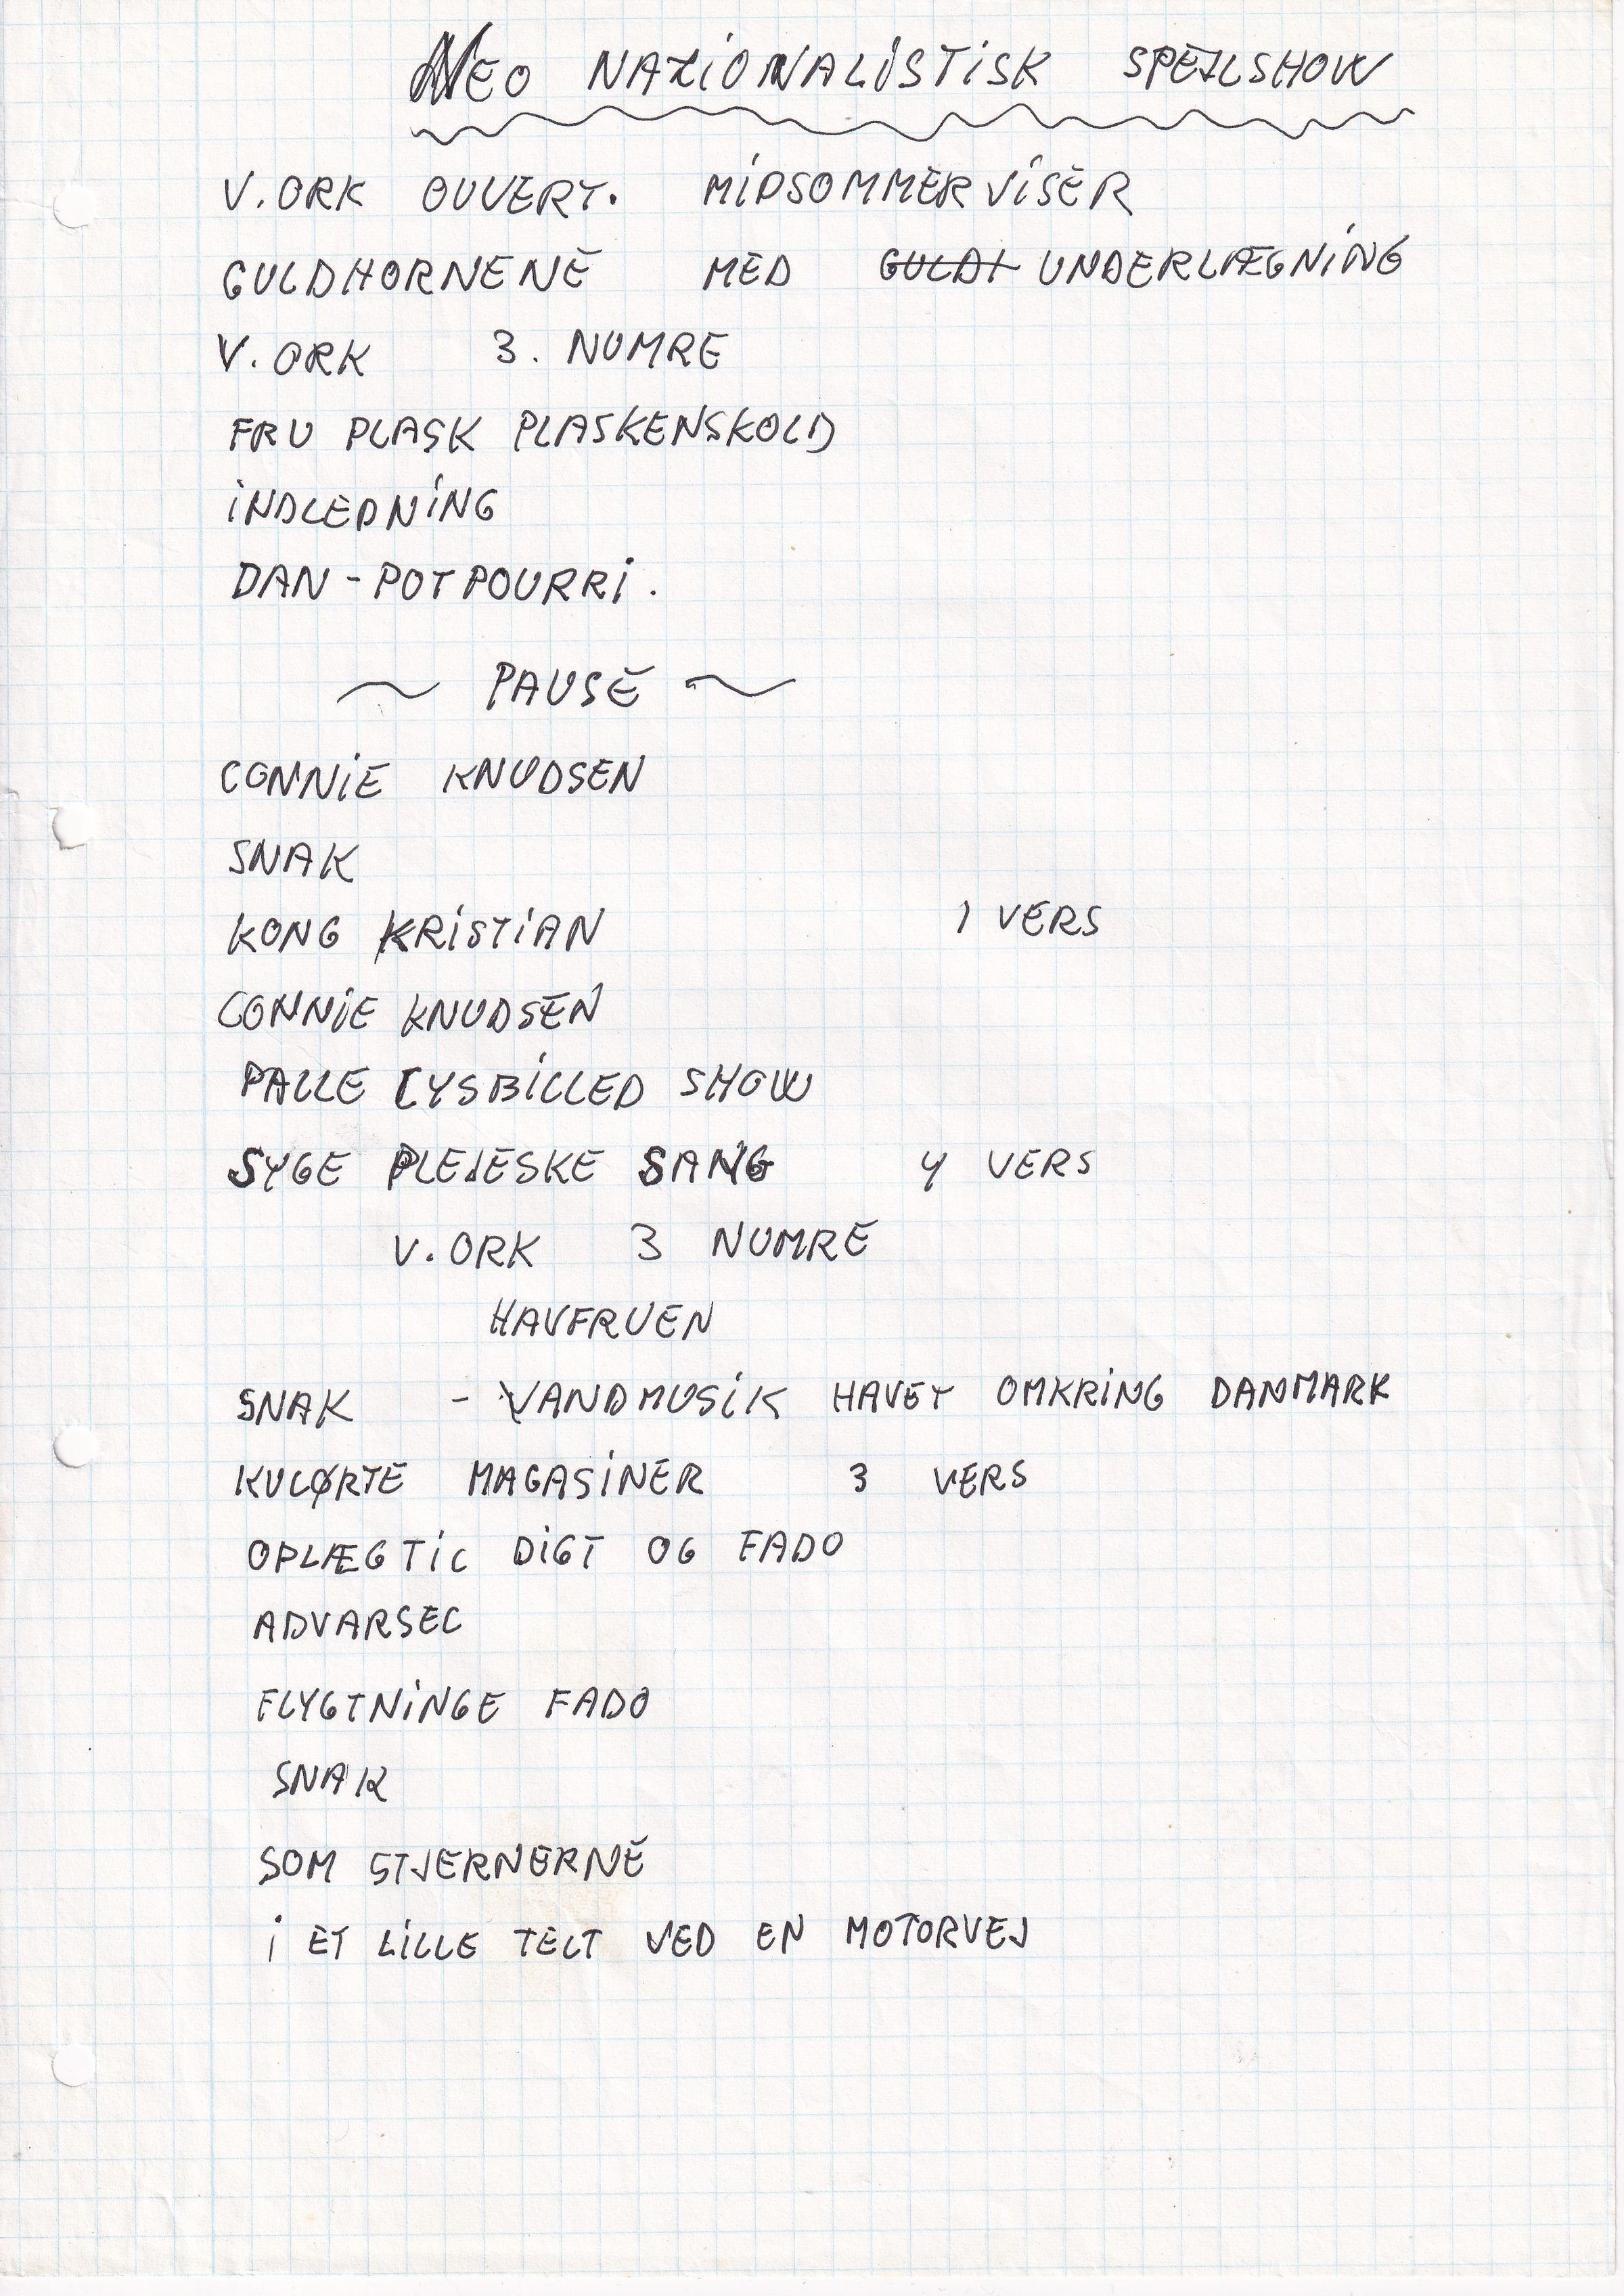 NEO NAZIONALISTISK SPEJLSHOW
V. ORK OUVERT. MIDSOMMERVISER
GULDHORNENE MED GULDH UNDERLÆGNING
V. ORK 3. NUMRE
FRU PLASK PLASKENSKOLD
INDLEDNING
DAN-POTPOURRI.
~ PAUSE ~
CONNIE KNUDSEN
SNAK
KONG KRISTIAN 1 VERS
CONNIE KNUDSEN
PALLE LYSBILLED SHOW
SYGE PLEJESKE SANG 4 VERS
V. ORK 3 NUMRE
HAVFRUEN
SNAK - VANDMUSIK HAVET OMKRING DANMARK
KULØRTE MAGASINER 3 VERS
OPLÆG TIL DIGT OG FADO
ADVARSEL
FLYGTNINGE FADO
SNAK
SOM STJERNERNE
I ET LILLE TELT VED EN MOTORVEJ